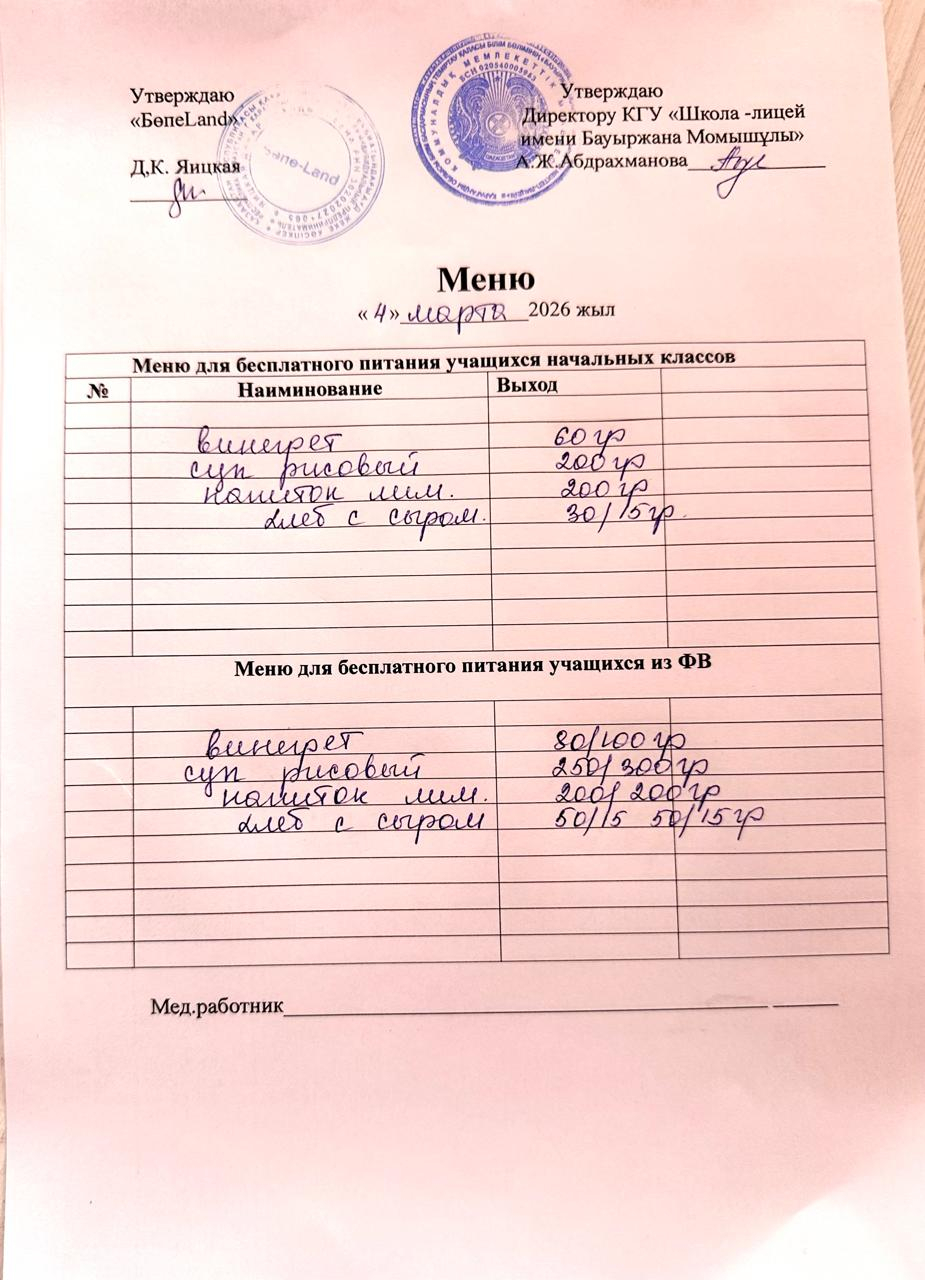 Утверждаю
«БөпеLand»
Д,К. Яицкая
Бөпе-Land
Утверждаю
Директору КГУ «Школа -лицей
имени Бауыржана Момышұлы»
А.Ж.Абдрахманова
Меню
« 4 » марта 2026 жыл
Меню для бесплатного питания учащихся начальных классов
№ Наиминование Выход
винегрет 60 гр
суп рисовый 200 гр
напиток лим. 200 гр
хлеб с сыром. 30/15 гр.
Меню для бесплатного питания учащихся из ФВ
винегрет 80/100 гр
суп рисовый 250/300 гр
напиток лим. 200/200 гр
хлеб с сыром 50/15 50/15 гр
Мед.работник